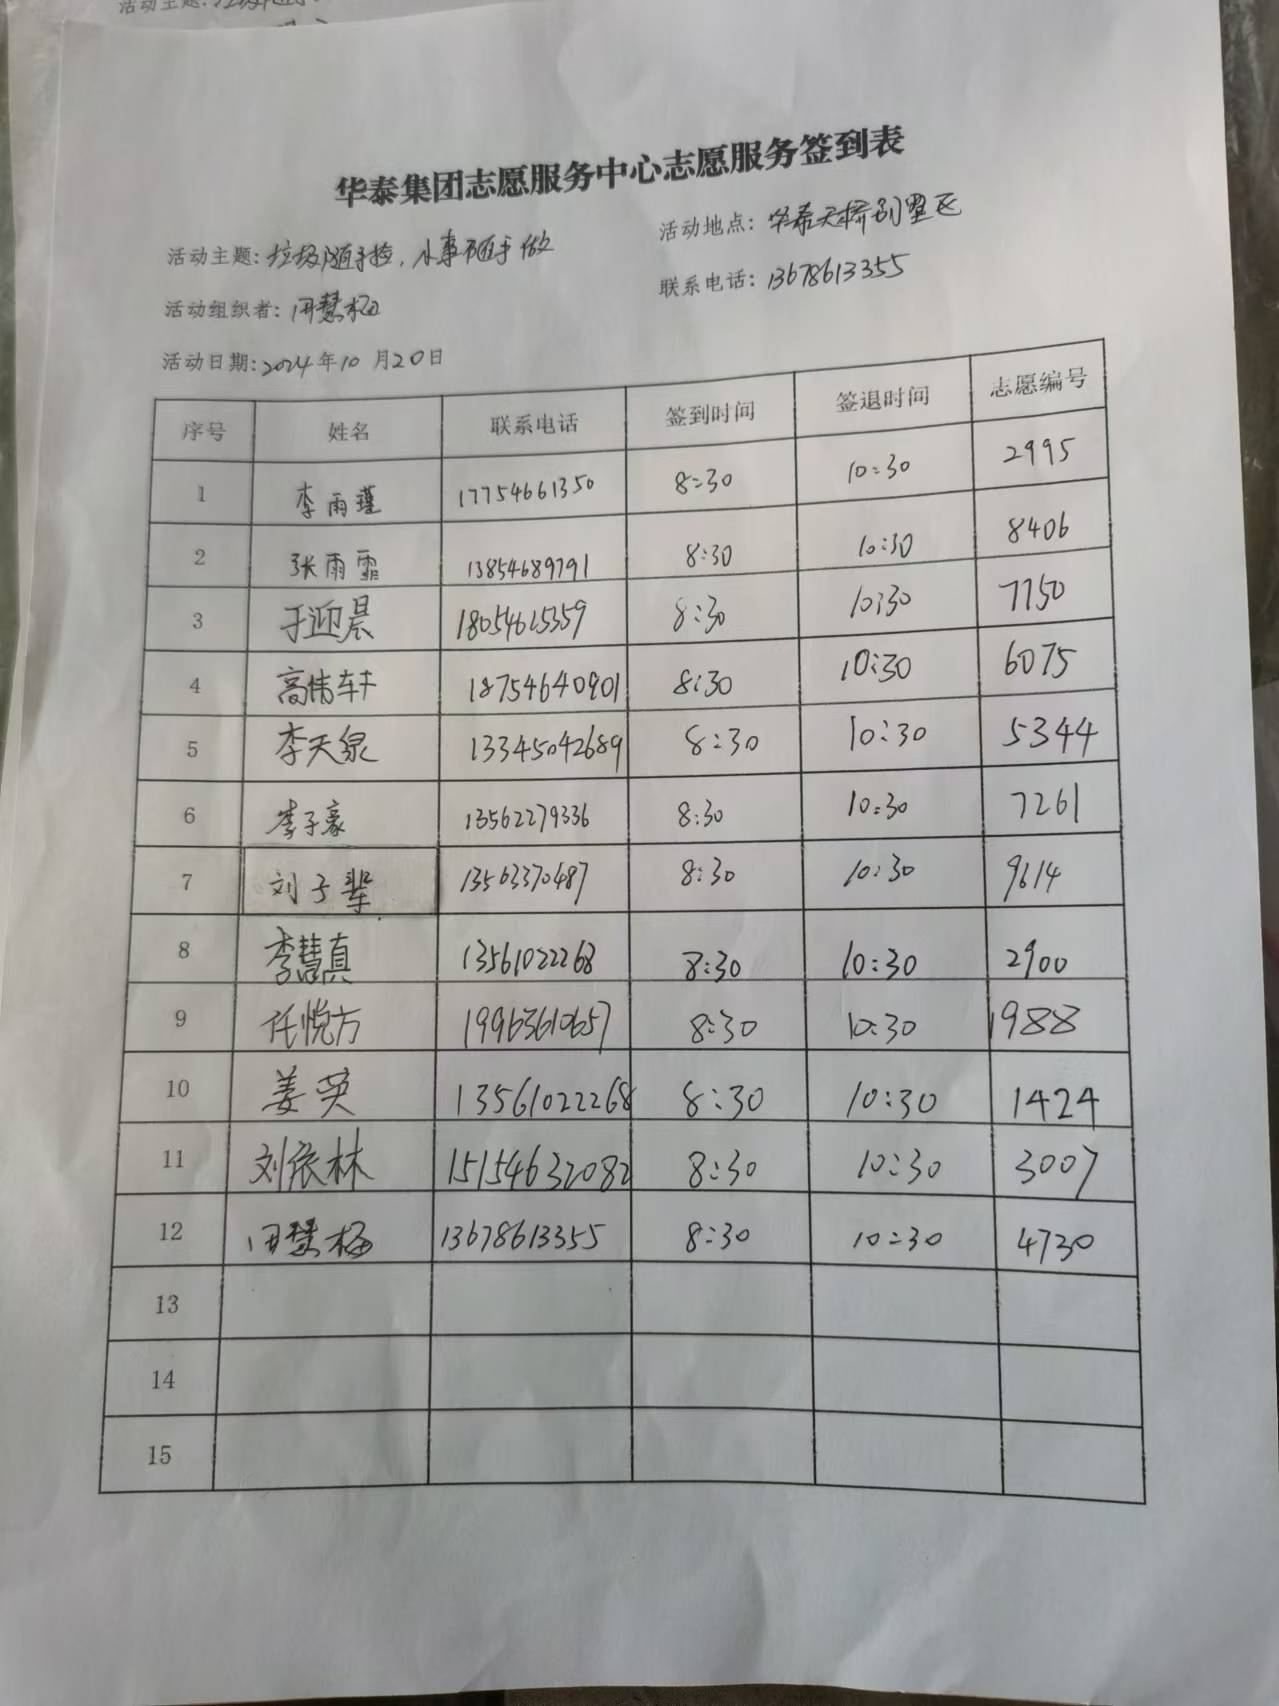 活动主题:
华泰集团志愿服务中心志愿服务签到表
活动主题:垃圾随手捡,小事随手做 活动地点:华泰天桥别墅区
活动组织者:田慧梅 联系电话:13678613355
活动日期:2024年10月20日
序号 姓名 联系电话 签到时间 签退时间 志愿编号
1 李雨瑾 17754661350 8:30 10:30 2995
2 张雨霏 13854689791 8:30 10:30 8406
3 于迎晨 18054615359 8:30 10:30 7150
4 高伟轩 18754640901 8:30 10:30 6075
5 李天泉 13345042689 8:30 10:30 5344
6 李子豪 13562279336 8:30 10:30 7261
7 刘子 13563370487 8:30 10:30 9614
8 李慧真 13561022268 8:30 10:30 2900
9 任悦方 19963610657 8:30 10:30 1988
10 姜英 13561022268 8:30 10:30 1424
11 刘依林 15154632082 8:30 10:30 3007
12 田慧梅 13678613355 8:30 10:30 4730
13
14
15